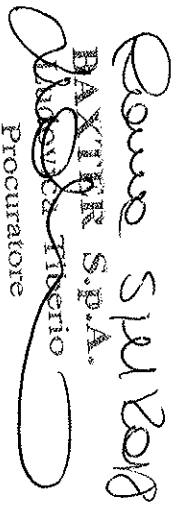 Roma 2018
BAXTER S.p.A.
Ludovica Tiberio
Procuratore